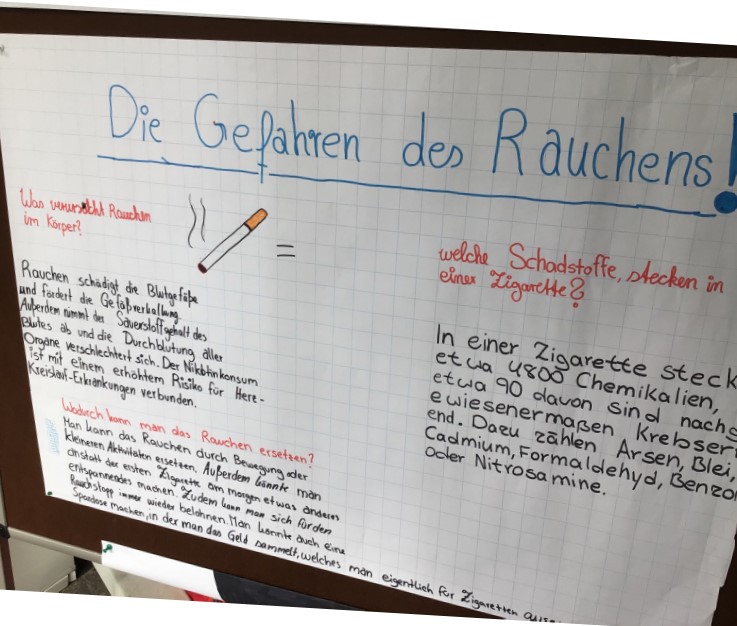 Die Gefahren des Rauchens!
Was verursacht Rauchen
im Körper?
=
Rauchen schädigt die Blutgefäße
und fördert die Gefäßverkalkung.
Außerdem nimmt der Sauerstoffgehalt des
Blutes ab und die Durchblutung aller
Organe verschlechtert sich. Der Nikotinkonsum
ist mit einem erhöhtem Risiko für Here-
Kreislauf-Erkrankungen verbunden.
Wodurch kann man das Rauchen ersetzen?
Man kann das Rauchen durch Bewegung oder
kleineren Aktivitäten ersetzen. Außerdem könnte man
anstatt der ersten Zigarette am morgen etwas anderes
entspannendes machen. Zudem kann man sich für den
Rauchstopp immer wieder belohnen. Man könnte auch eine
Spardose machen, in der man das Geld sammelt, welches man eigentlich für Zigaretten
welche Schadstoffe, stecken in
einer Zigarette?
In einer Zigarette steck
etwa 4800 Chemikalien,
etwa 90 davon sind nachg
ewiesenermaßen Krebser
end. Dazu zählen Arsen, Blei,
Cadmium, Formaldehyd, Benzo
oder Nitrosamine.